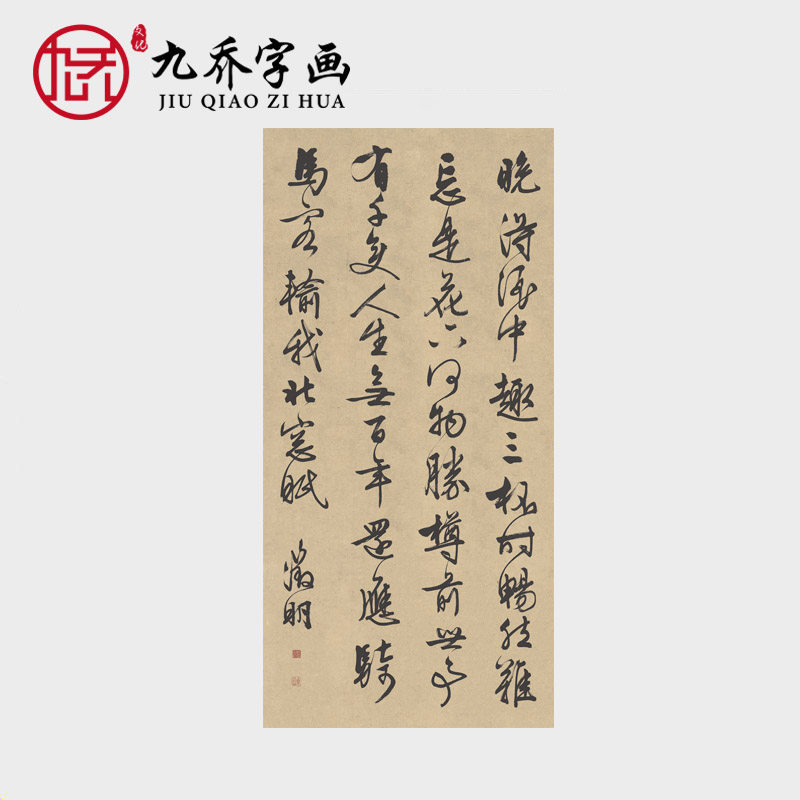 文化
九乔字画
JIU QIAO ZI HUA
晚得酒中趣三杯時暢然難
忘是花下何物勝樽前世事
有千變人生無百年還應騎
馬客輸我北窓眠
徵明